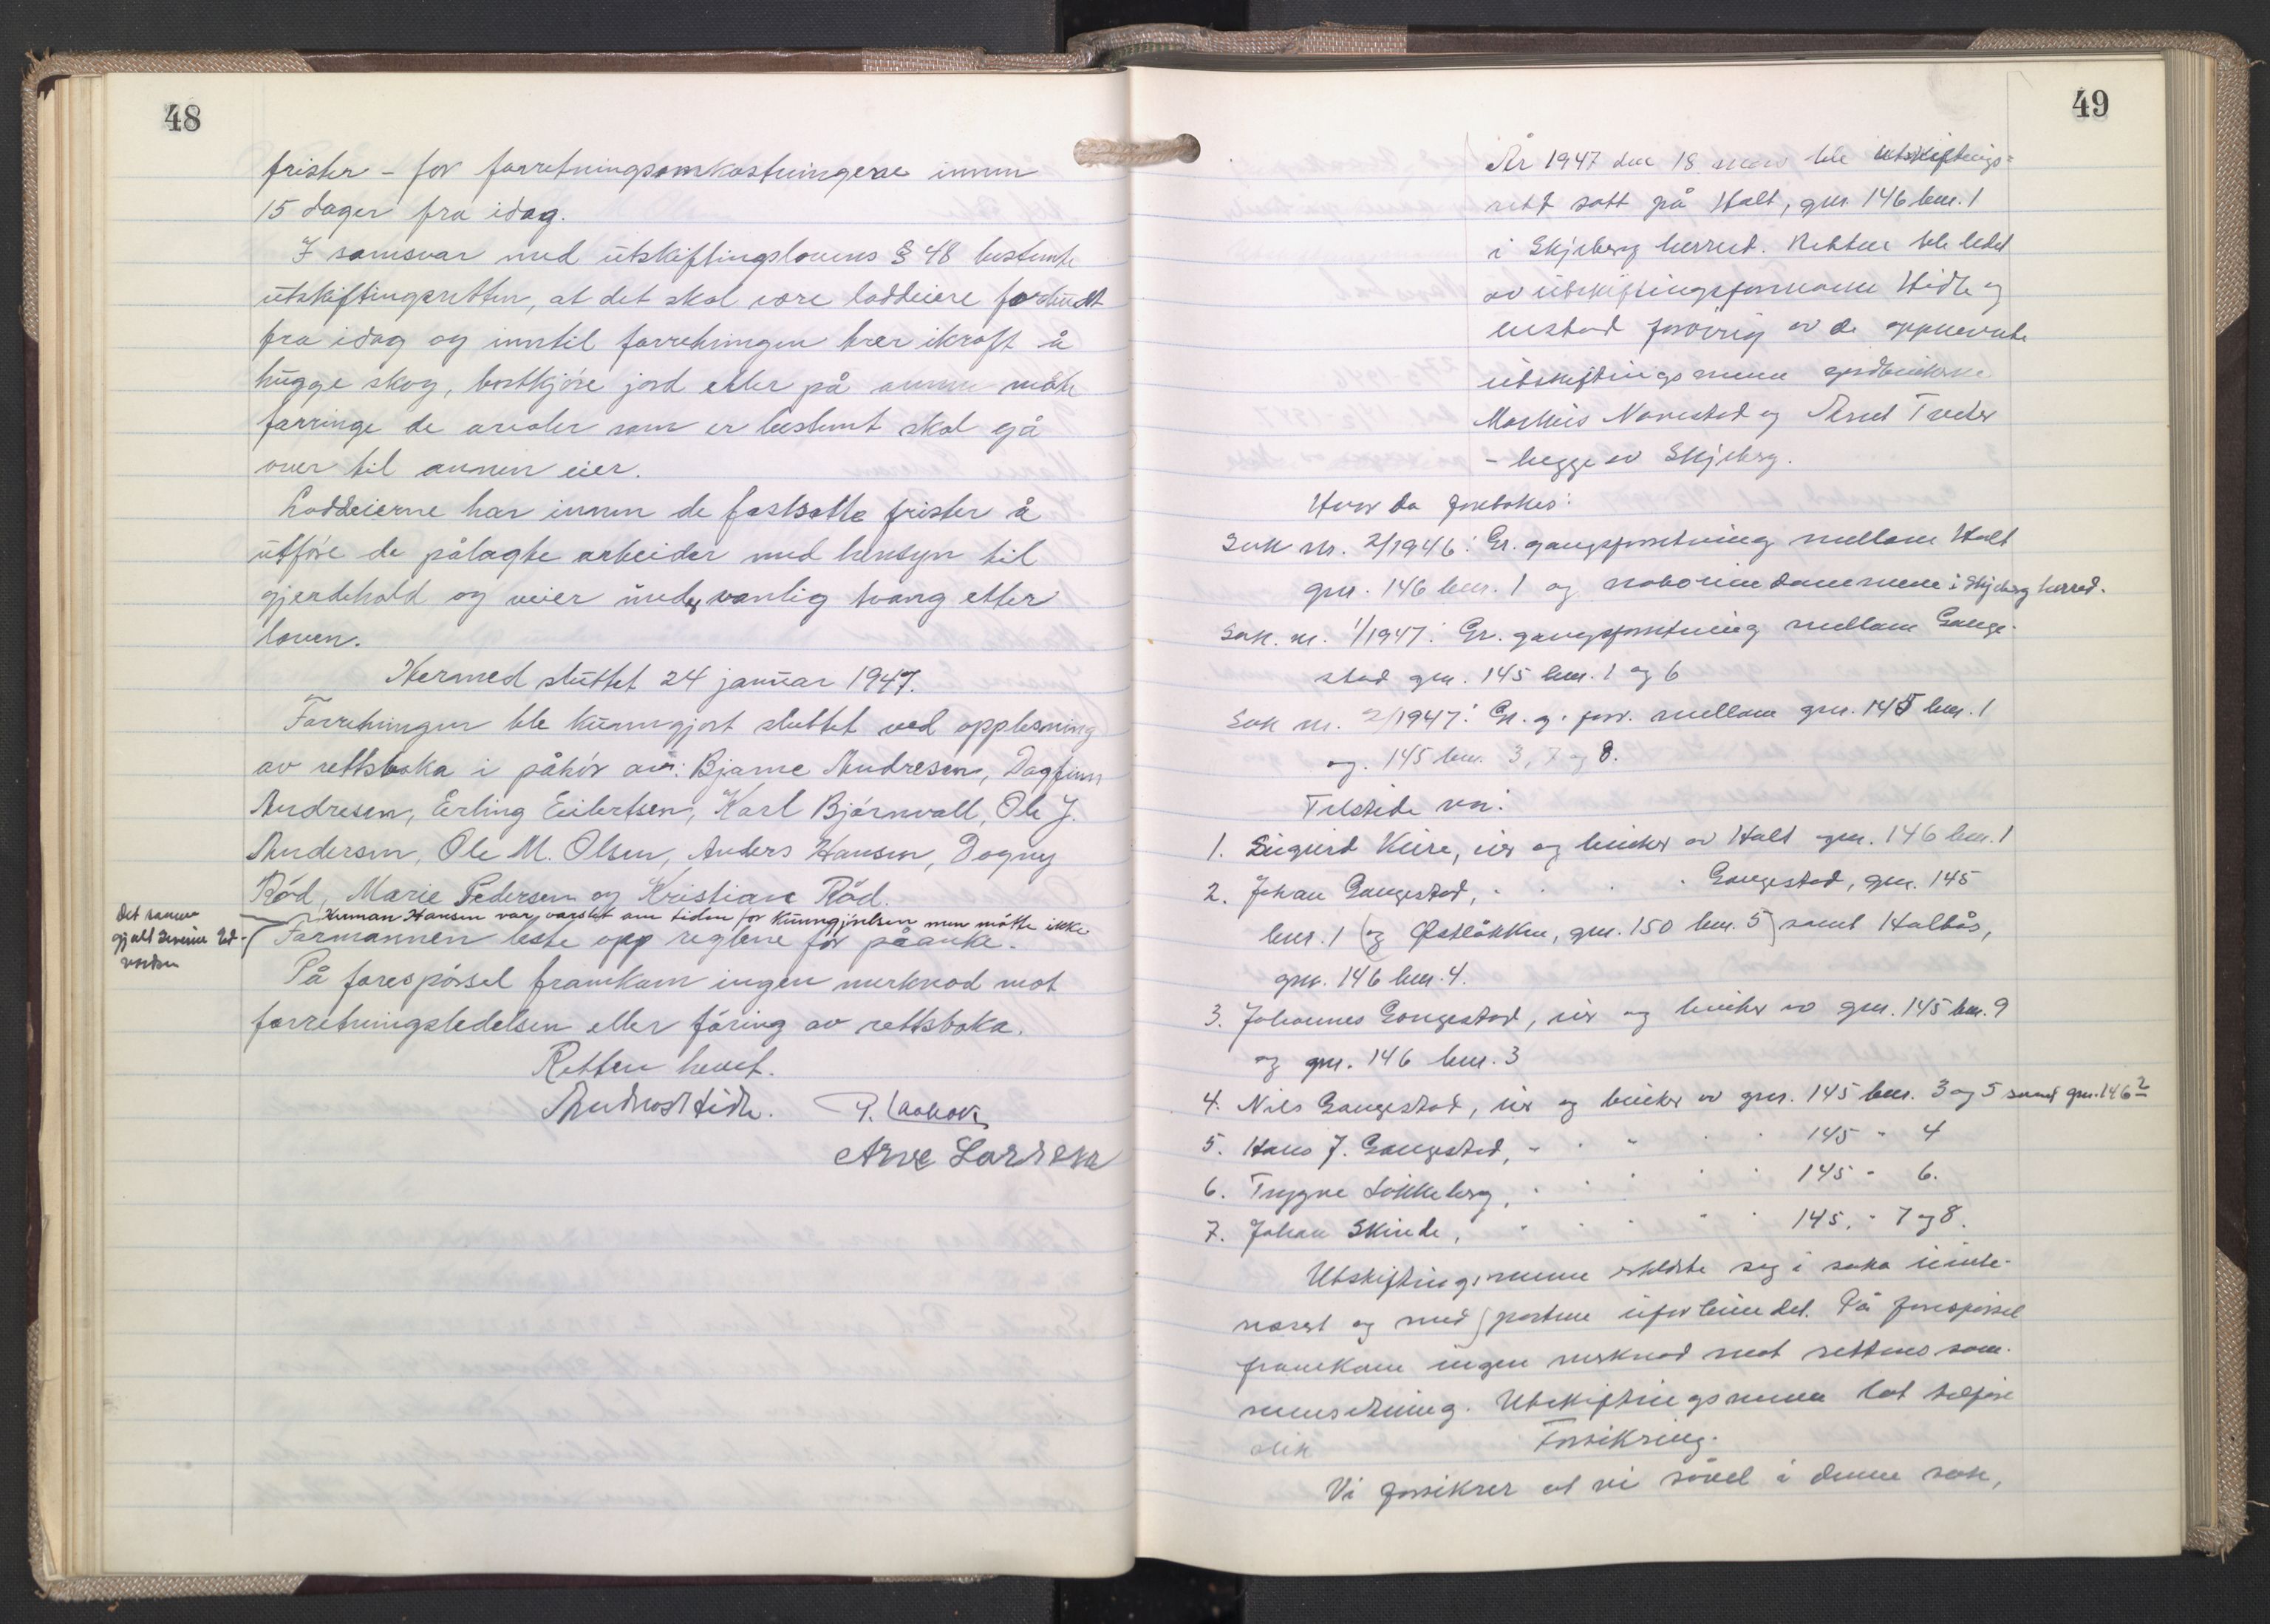 48
frister - for forretningsomkostningene innen
15 dager fra idag.
I samsvar med utskiftingslovens § 48 bestemte
utskiftingsretten, at det skal være loddeiere forbudt
fra idag og inntil forretningen trer ikraft å
hugge skog, bortkjøre jord eller på annen måte
forringe de arealer som er bestemt skal gå
over til annen eier.
Loddeierne har innen de fastsatte frister å
utføre de pålagte arbeider med hensyn til
gjerdehold og veier under vanlig tvang etter
loven.
Hermed sluttet 24 januar 1947.
Forretningen ble kunngjort sluttet ved opplesning
av rettsboka i påhør av: Bjarne Andresen, Dagfinn
Andresen, Erling Eilertsen, Karl Bjørnvall, Ole J.
Andersen, Ole M. Olsen, Anders Hansen, Dagny
Rød, Marie Pedersen og Kristian Rød.
Herman Hansen var varslet om tiden for kunngjørelsen men møtte ikke
Det samme
gjalt Severin Ed-
vardsen
Formannen leste opp reglene for påanke.
På forespørsel framkom ingen merknad mot
forretningsledelsen eller føring av rettsboka.
Retten hevet.
Andreas Hidle.
Arve Larsen
49
År 1947 den 18 mars ble utskiftings-
rett satt på Holt, gnr. 146 bnr. 1
i Skjeberg herred. Retten ble ledet
av utskiftingsformann Hidle og
enstad forøvrig av de oppnevnte
utskiftingsmenn gårdbrukerne
Markus Navestad og Arnt Tveter
- begge av Skjeberg.
Hvor da foretokes:
Sak nr. 2/1946: Gr. gangsforretning mellom Holt
gnr. 146 bnr. 1 og naboeiendommene i Skjeberg herred.
Sak. nr. 1/1947: Gr. gangsforretning mellom Gange-
stad gnr. 145 bnr. 1 og 6
Sak nr. 2/1947: Gr. g. forr. mellom gnr. 145 bnr. 1
og. 145 bnr. 3, 7 og 8.
Tilstede var:
1. Sigurd Keire, eier og bruker av Holt gnr. 146 bnr. 1
2. Johan Gangestad, " " " " Gangestad, gnr. 145
bnr. 1 (og Østløkken, gnr. 150 bnr. 5) samt Holtås,
gnr. 146 bnr. 4.
3. Johannes Gangestad, eier og bruker av gnr. 145 bnr. 9
og gnr. 146 bnr. 3
4. Nils Gangestad, eier og bruker av gnr. 145 bnr. 3 og 5 samt gnr. 146 2
5. Hans J. Gangestad, " " " " " 145 " 4
6. Trygve Løkkeberg, " " " " " 145 " 6.
7. Johan Skinde, " " " " " 145, " 7 og 8.
Utskiftingsmennene erklærte seg i saka uinte-
ressert og med partene uforbundet. På forespørsel
framkom ingen merknad mot rettens sam-
mensetning. Utskiftingsmennene lot tilføre
slik Forsikring.
Vi forsikrer at vi såvel i denne sak,